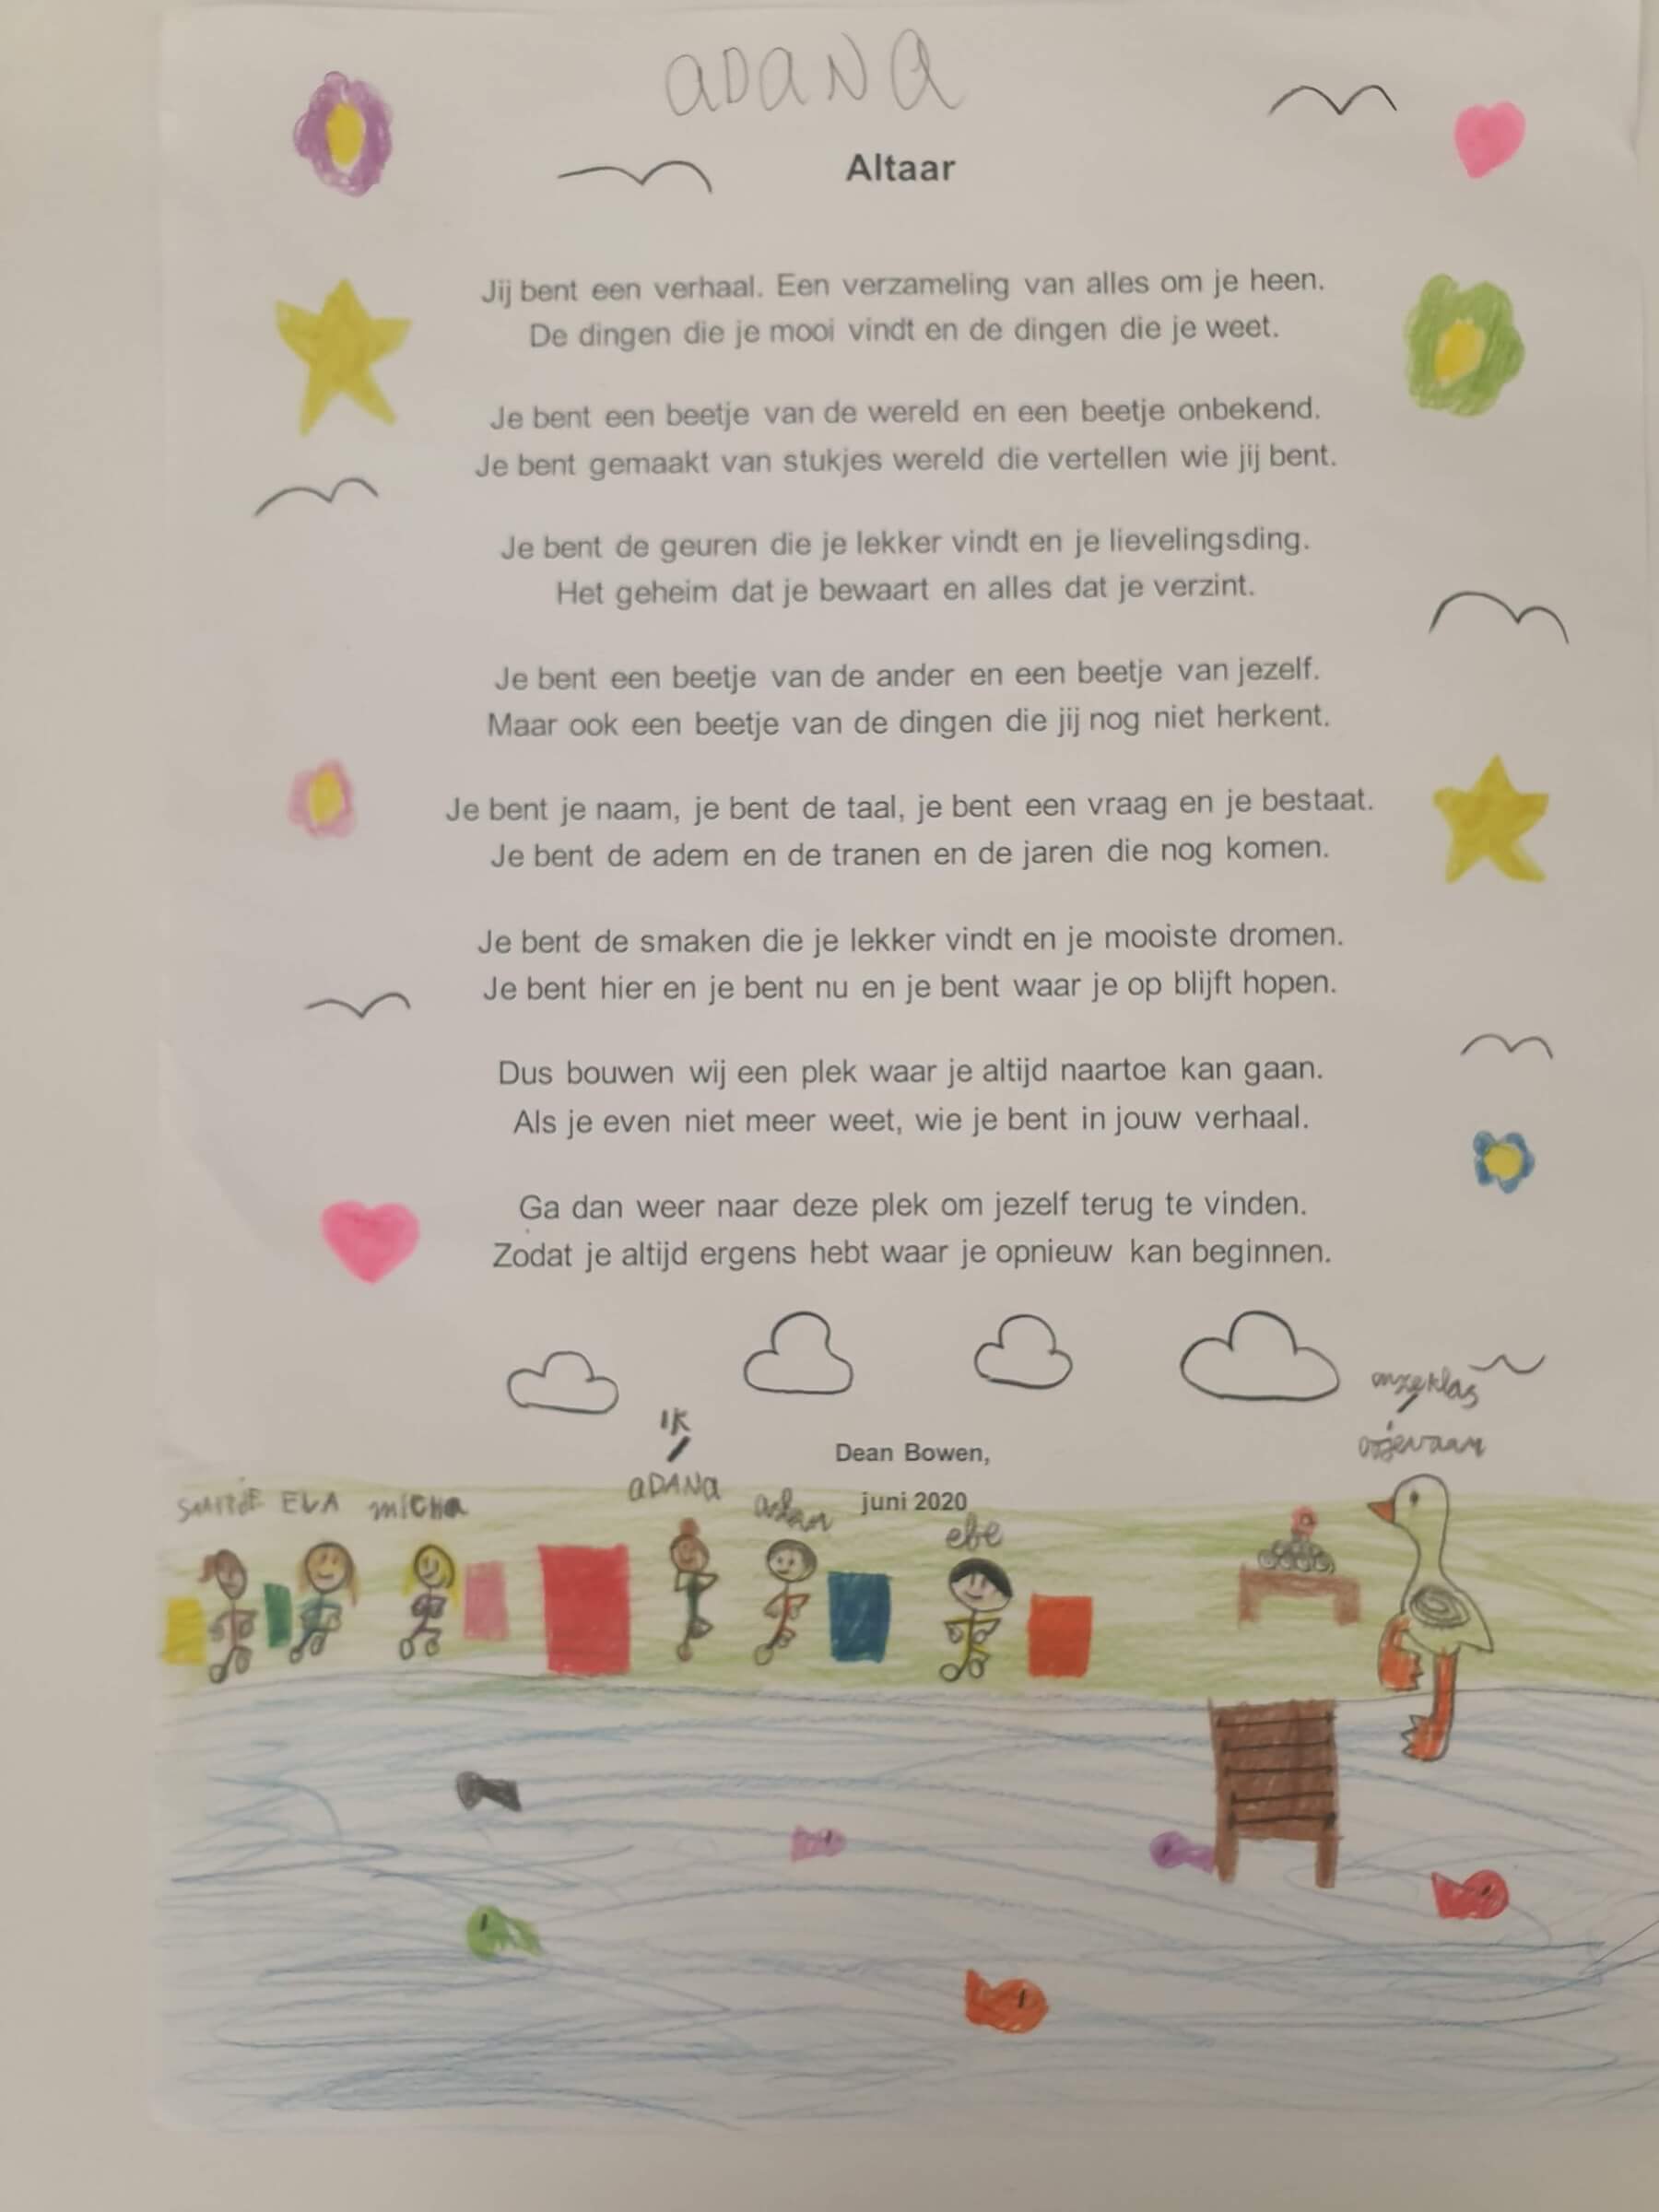 ADANA
Altaar
Jij bent een verhaal. Een verzameling van alles om je heen.
De dingen die je mooi vindt en de dingen die je weet.
Je bent een beetje van de wereld en een beetje onbekend.
Je bent gemaakt van stukjes wereld die vertellen wie jij bent.
Je bent de geuren die je lekker vindt en je lievelingsding.
Het geheim dat je bewaart en alles dat je verzint.
Je bent een beetje van de ander en een beetje van jezelf.
Maar ook een beetje van de dingen die jij nog niet herkent.
Je bent je naam, je bent de taal, je bent een vraag en je bestaat.
Je bent de adem en de tranen en de jaren die nog komen.
Je bent de smaken die je lekker vindt en je mooiste dromen.
Je bent hier en je bent nu en je bent waar je op blijft hopen.
Dus bouwen wij een plek waar je altijd naartoe kan gaan.
Als je even niet meer weet, wie je bent in jouw verhaal.
Ga dan weer naar deze plek om jezelf terug te vinden.
Zodat je altijd ergens hebt waar je opnieuw kan beginnen.
onze klas
IK
Dean Bowen,
juni 2020
ELA MICHA
ADANA
efe